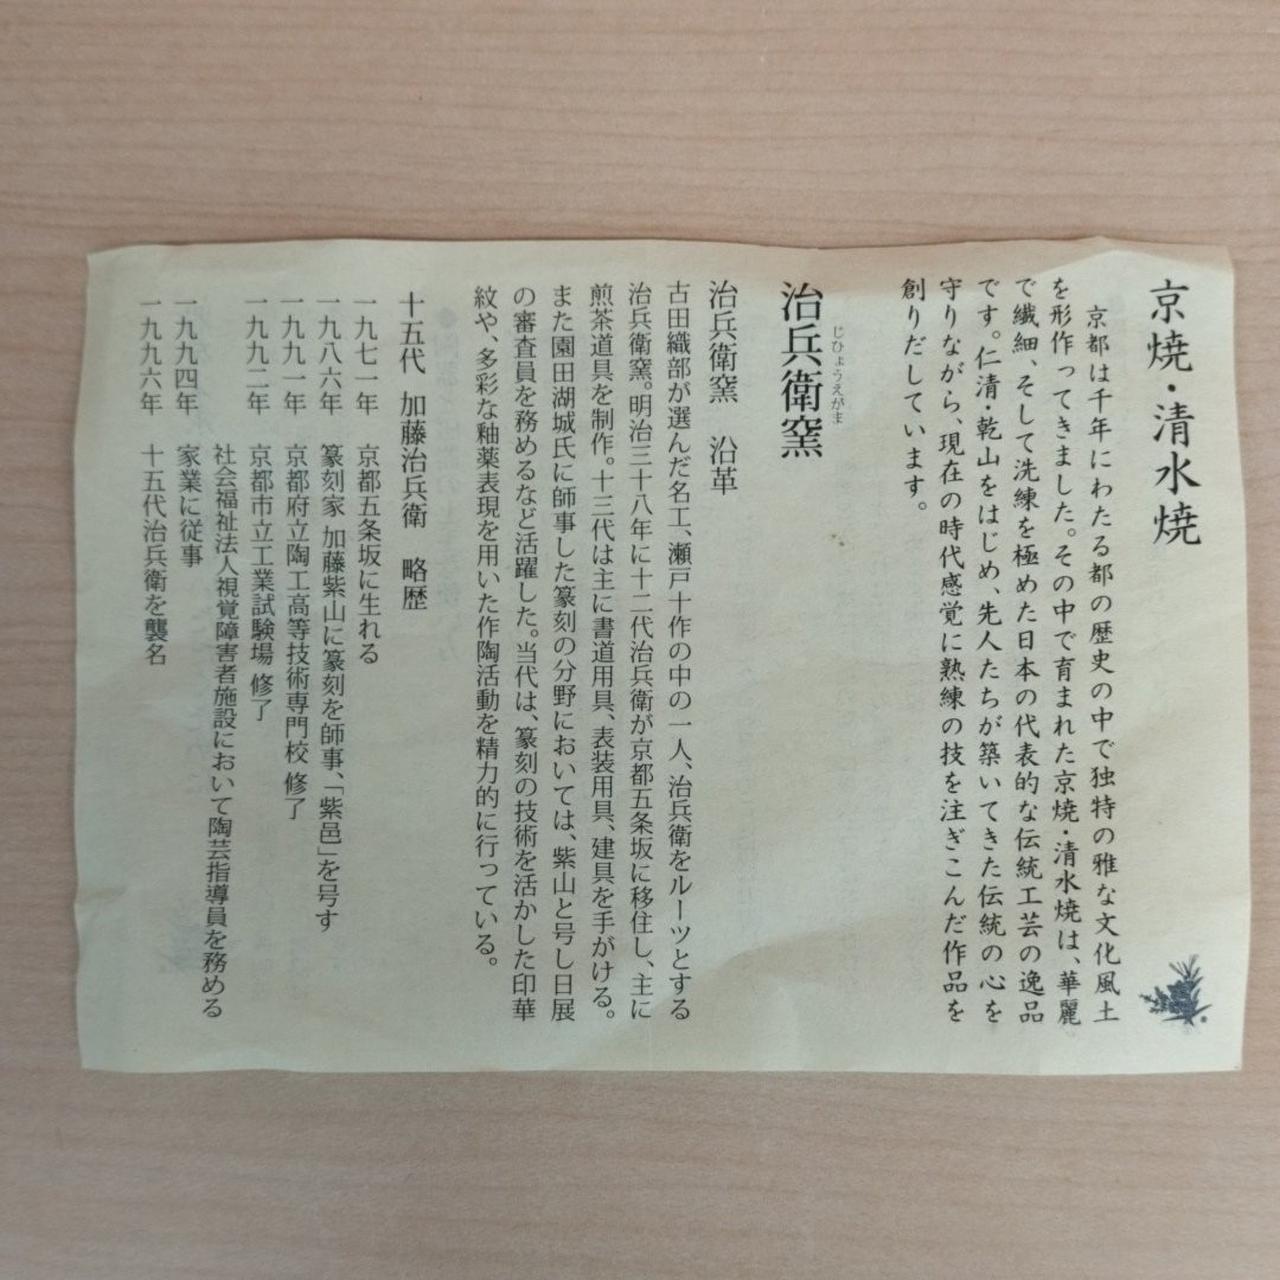 京焼・清水焼
京都は千年にわたる都の歴史の中で独特の雅な文化風土
を形作ってきました。その中で育まれた京焼・清水焼は、華麗
で繊細、そして洗練を極めた日本の代表的な伝統工芸の逸品
です。仁清・乾山をはじめ、先人たちが築いてきた伝統の心を
守りながら、現在の時代感覚に熟練の技を注ぎこんだ作品を
創りだしています。
じひょうえがま
治兵衛窯
治兵衛窯 沿革
古田織部が選んだ名工、瀬戸十作の中の一人、治兵衛をルーツとする
治兵衛窯。明治三十八年に十二代治兵衛が京都五条坂に移住し、主に
煎茶道具を制作。十三代は主に書道用具、表装用具、建具を手がける。
また園田湖城氏に師事した篆刻の分野においては、紫山と号し日展
の審査員を務めるなど活躍した。当代は、篆刻の技術を活かした印華
紋や、多彩な釉薬表現を用いた作陶活動を精力的に行っている。
十五代 加藤治兵衛 略歴
一九七一年 京都五条坂に生れる
一九八六年 篆刻家 加藤紫山に篆刻を師事、「紫邑」を号す
一九九一年 京都府立陶工高等技術専門校 修了
一九九二年 京都市立工業試験場 修了
社会福祉法人視覚障害者施設において陶芸指導員を務める
一九九四年 家業に従事
一九九六年 十五代治兵衛を襲名